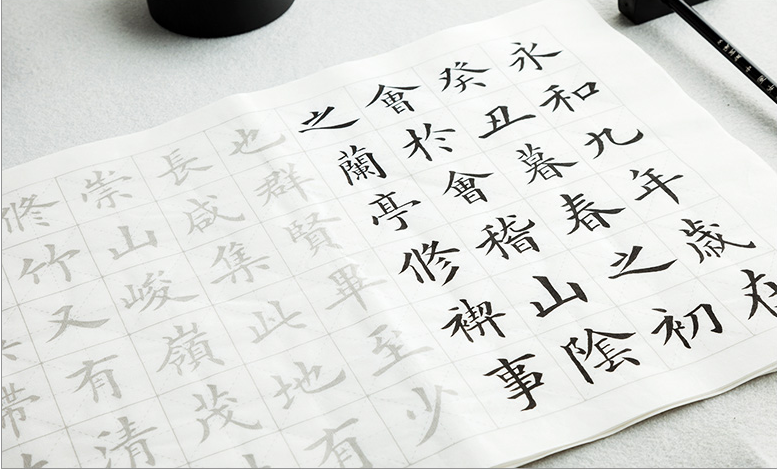 永和九年歲在
癸丑暮春之初
會於會稽山陰
之蘭亭修禊事
也群賢畢至少
長咸集此地有
崇山峻嶺茂
修竹又有清
帶